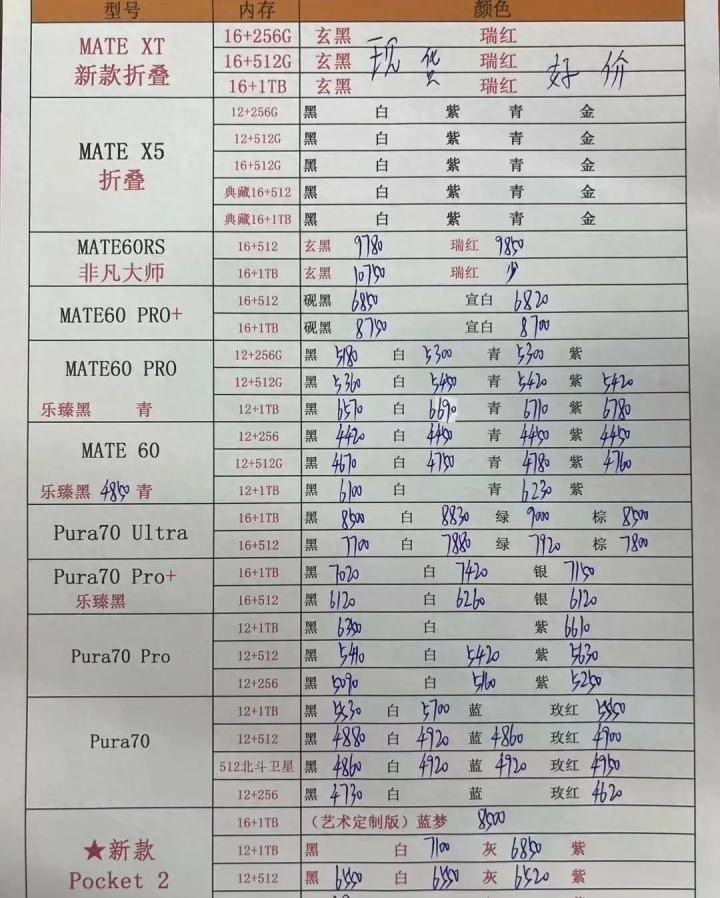 型号 内存 颜色
MATE XT 新款折叠
16+256G 玄黑 瑞红
16+512G 玄黑 现货 瑞红 好价
16+1TB 玄黑 瑞红
MATE X5 折叠
12+256G 黑 白 紫 青 金
12+512G 黑 白 紫 青 金
16+512G 黑 白 紫 青 金
典藏16+512 黑 白 紫 青 金
典藏16+1TB 黑 白 紫 青 金
MATE60RS 非凡大师
16+512 玄黑 9780 瑞红 9850
16+1TB 玄黑 10750 瑞红 少
MATE60 PRO+
16+512 砚黑 6850 宣白 6820
16+1TB 砚黑 8750 宣白 8700
MATE60 PRO
乐臻黑 青
12+256G 黑 5180 白 5300 青 5300 紫
12+512G 黑 5360 白 5450 青 5420 紫 5420
12+1TB 黑 6570 白 6690 青 6710 紫 6780
MATE 60
乐臻黑 4850 青
12+256 黑 4420 白 4450 青 4450 紫 4450
12+512G 黑 4670 白 4750 青 4780 紫 4760
12+1TB 黑 6100 白 青 6230 紫
Pura70 Ultra
16+1TB 黑 8500 白 8830 绿 9000 棕 8500
16+512 黑 7700 白 7880 绿 7920 棕 7800
Pura70 Pro+
乐臻黑
16+1TB 黑 7020 白 7420 银 7150
16+512 黑 6120 白 6260 银 6120
Pura70 Pro
12+1TB 黑 6350 白 紫 6610
12+512 黑 5410 白 5420 紫 5630
12+256 黑 5090 白 5160 紫 5250
Pura70
12+1TB 黑 5530 白 5700 蓝 玫红 5550
12+512 黑 4880 白 4920 蓝 4860 玫红 4900
512北斗卫星 黑 4860 白 4920 蓝 4920 玫红 4950
12+256 黑 4730 白 蓝 玫红 4620
★新款
Pocket 2
16+1TB (艺术定制版)蓝梦 8500
12+1TB 黑 白 7100 灰 6850 紫
12+512 黑 6550 白 6550 灰 6520 紫